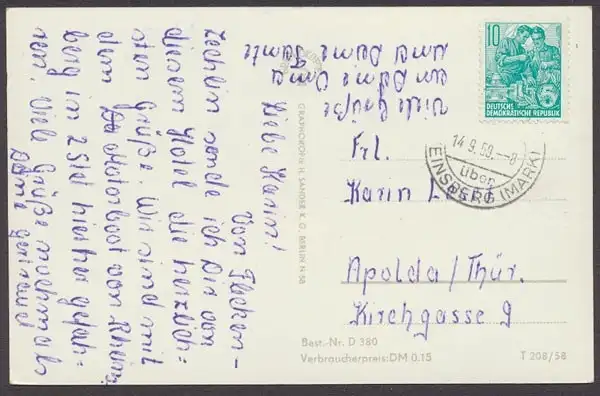 Liebe Karin!
Von Flecken-
Zechlin sende ich Dir von
diesem Hotel die herzlich=
sten Grüße. Wir sind mit
dem Motorboot von Rheins
berg in 2 Std hierher gefah=
ren. Viele Grüße nochmals
Deine
Viele Grüße
von Deiner Oma
GRAPHOKOPIE H. SANDER K. G., BERLIN N 58
10
DEUTSCHE
DEMOKRATISCHE REPUBLIK
14.9.59.-8
über
(MARK)
Frl.
Karin
Apolda/Thür.
Kirchgasse 9
Best.-Nr. D 380
Verbraucherpreis: DM 0.15
T 208/58